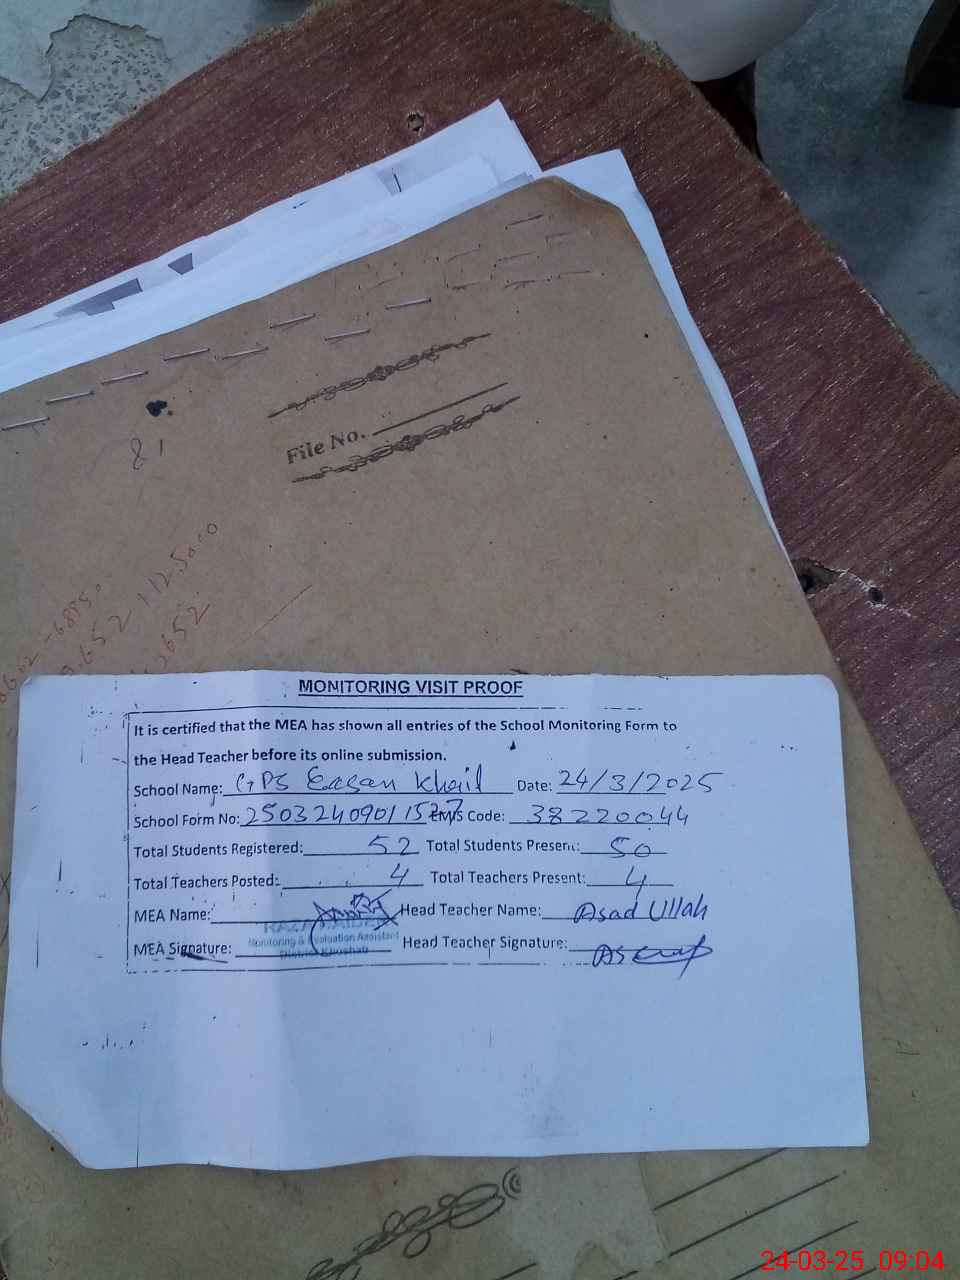 81
File No.
112.5000
2652
MONITORING VISIT PROOF
It is certified that the MEA has shown all entries of the School Monitoring Form to
the Head Teacher before its online submission.
School Name: GPS Easan Khail Date: 24/3/2025
School Form No: 250324090115 EMIS Code: 38220044
Total Students Registered: 52 Total Students Present: 50
Total Teachers Posted: 4 Total Teachers Present: 4
MEA Name: Head Teacher Name: Asad Ullah
Monitoring & Evaluation Assistant
District Khushab
MEA Signature: Head Teacher Signature:
24-03-25 09:04